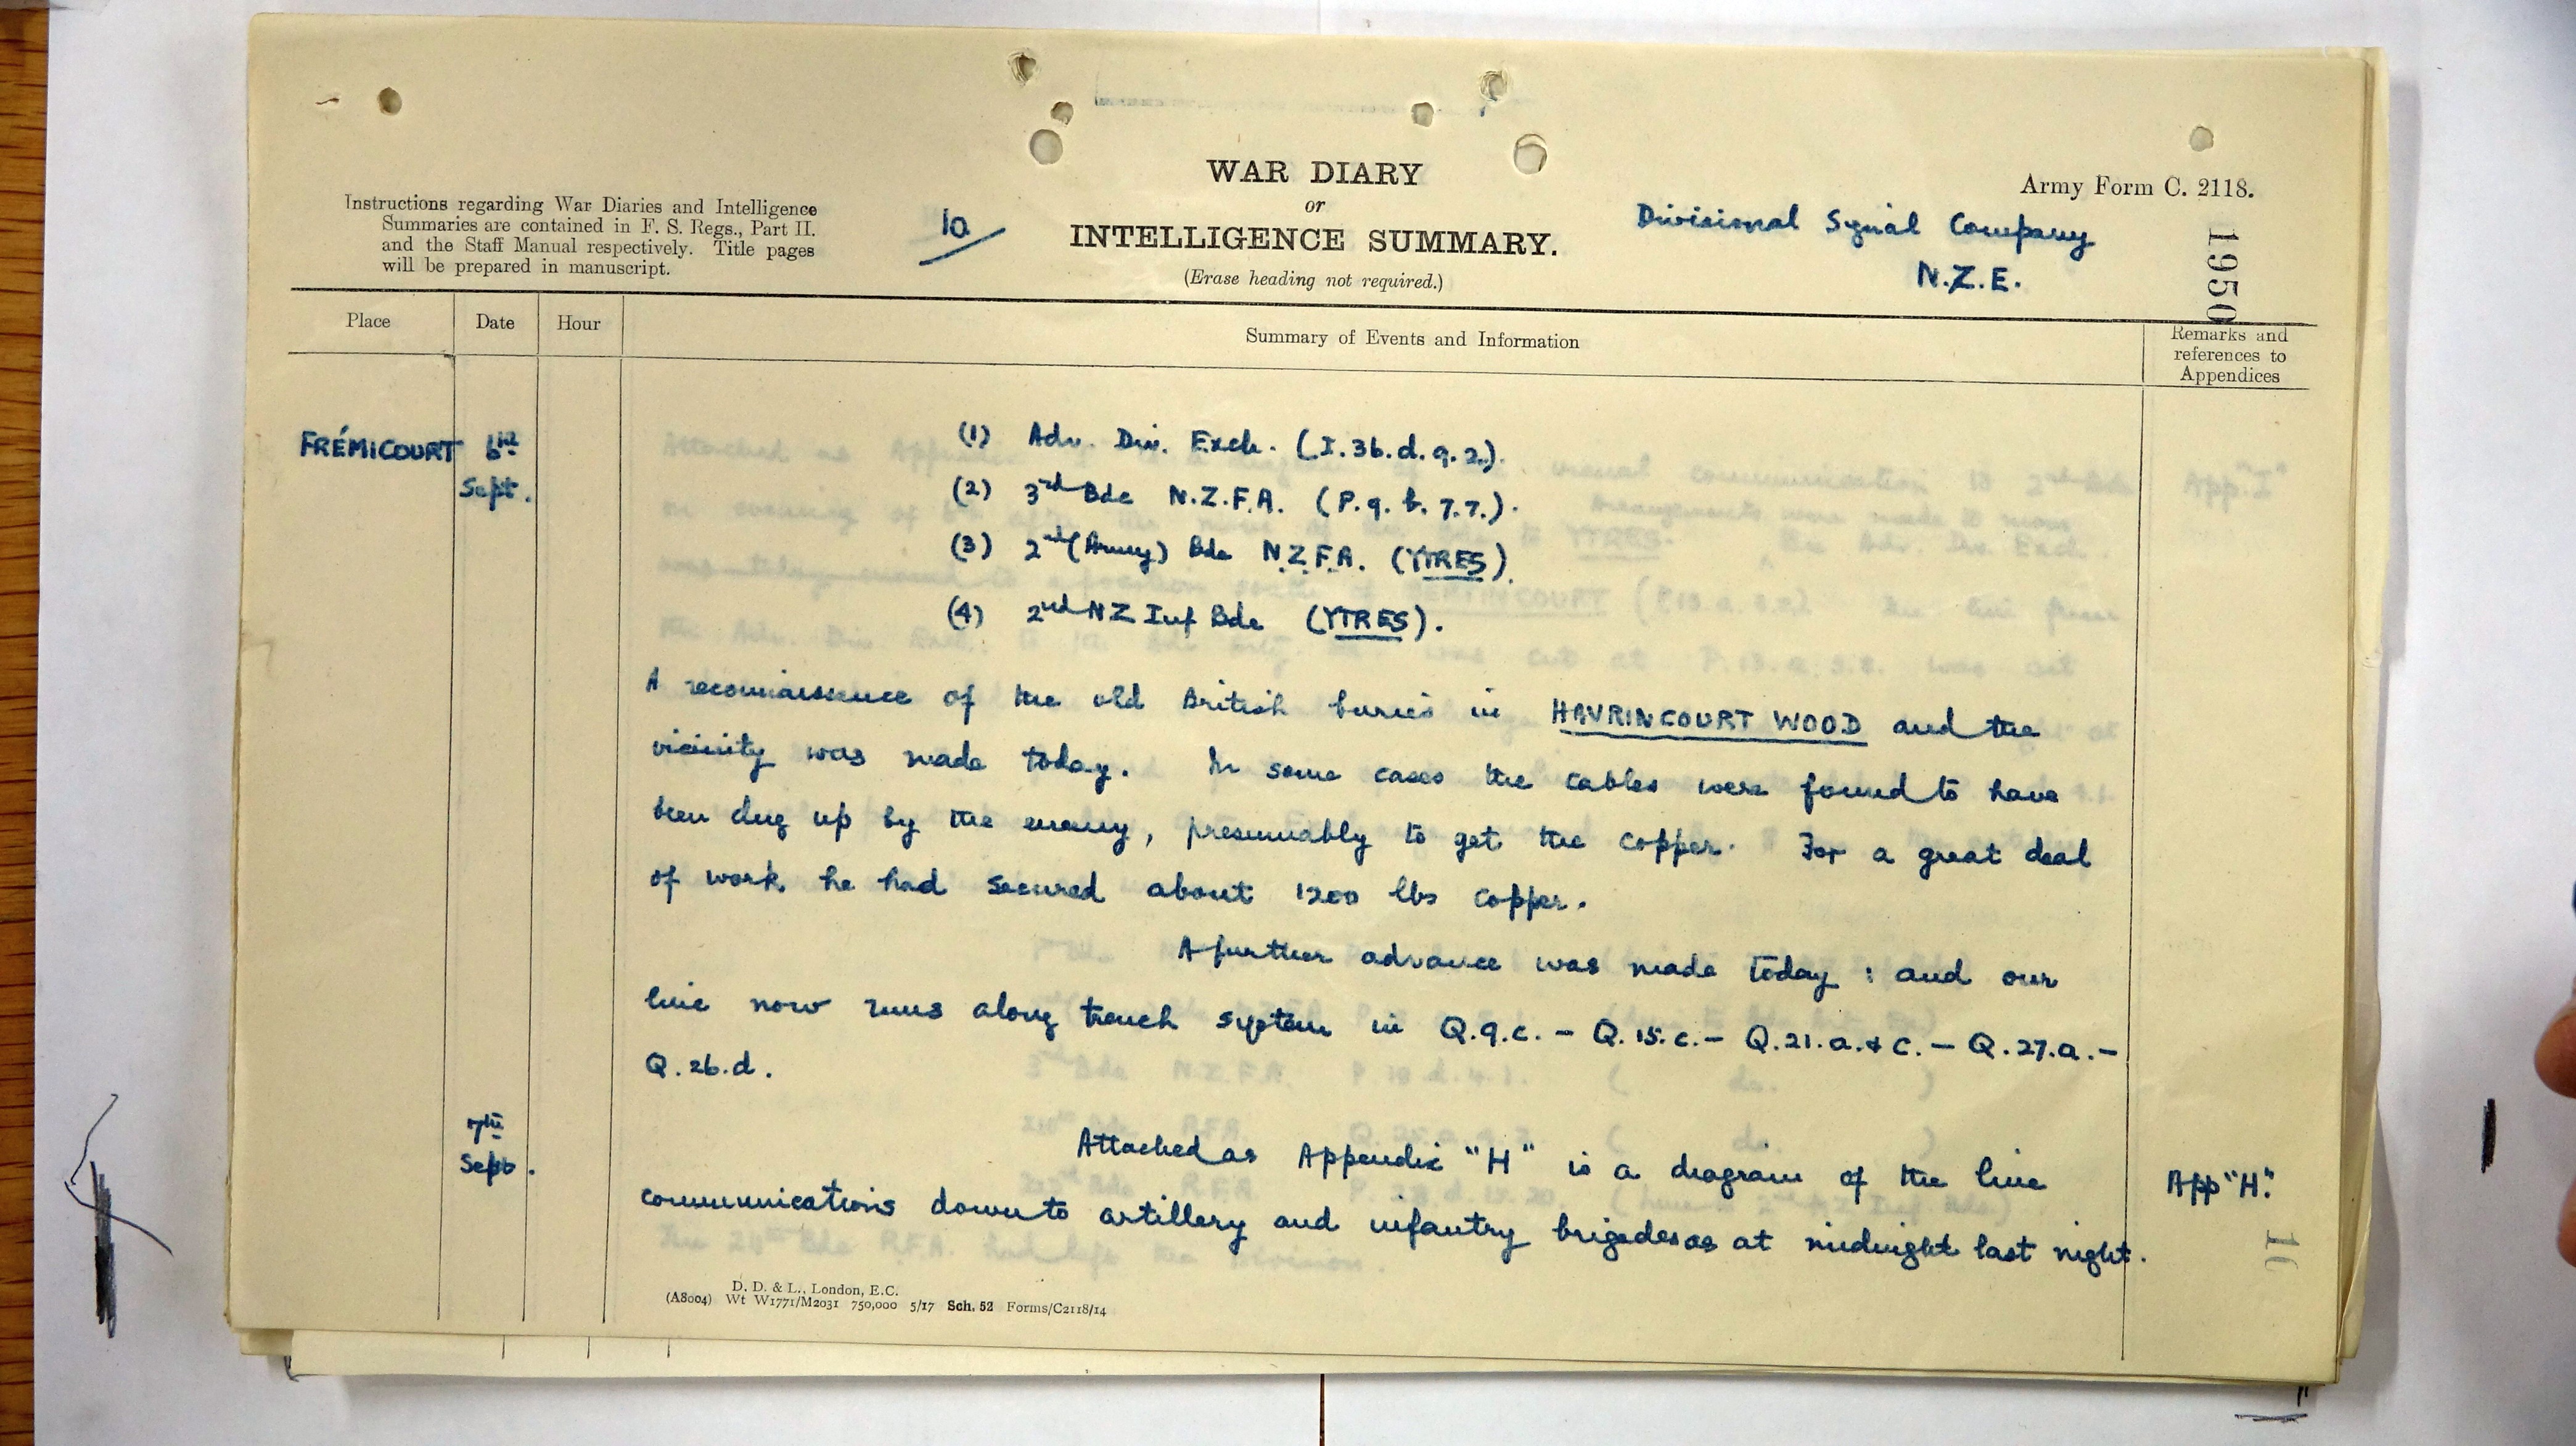 WAR DIARY
or
INTELLIGENCE SUMMARY.
(Erase heading not required.)
Army Form C. 2118.
Instructions regarding War Diaries and Intelligence
Summaries are contained in F. S. Regs., Part II.
and the Staff Manual respectively. Title pages
will be prepared in manuscript.
10
Divisional Signal Company
N.Z.E.
1950
Place
Date
Hour
Summary of Events and Information
Remarks and
references to
Appendices
FRÉMICOURT
6th
Sept.
(1) Adv. Div. Exch. (I.36.d.9.2.).
(2) 3rd Bde N.Z.F.A. (P.9.b.7.7.).
(3) 2nd (Army) Bde N.Z.F.A. (YTRES).
(4) 2nd NZ Inf Bde (YTRES).
A reconnaissance of the old British buries in HAVRINCOURT WOOD and the
vicinity was made today. In some cases the cables were found to have
been dug up by the enemy, presumably to get the copper. For a great deal
of work, he had secured about 1200 lbs copper.
A further advance was made today : and our
line now runs along trench system in Q.9.c. - Q.15.c. - Q.21.a.+c. - Q.27.a. -
Q.26.d.
7th
Sept.
Attached as Appendix "H" is a diagram of the line
communications down to artillery and infantry brigades as at midnight last night.
App "H".
D. D. & L., London, E.C.
(A8004) Wt W1771/M2031 750,000 5/17 Sch. 52 Forms/C2118/14